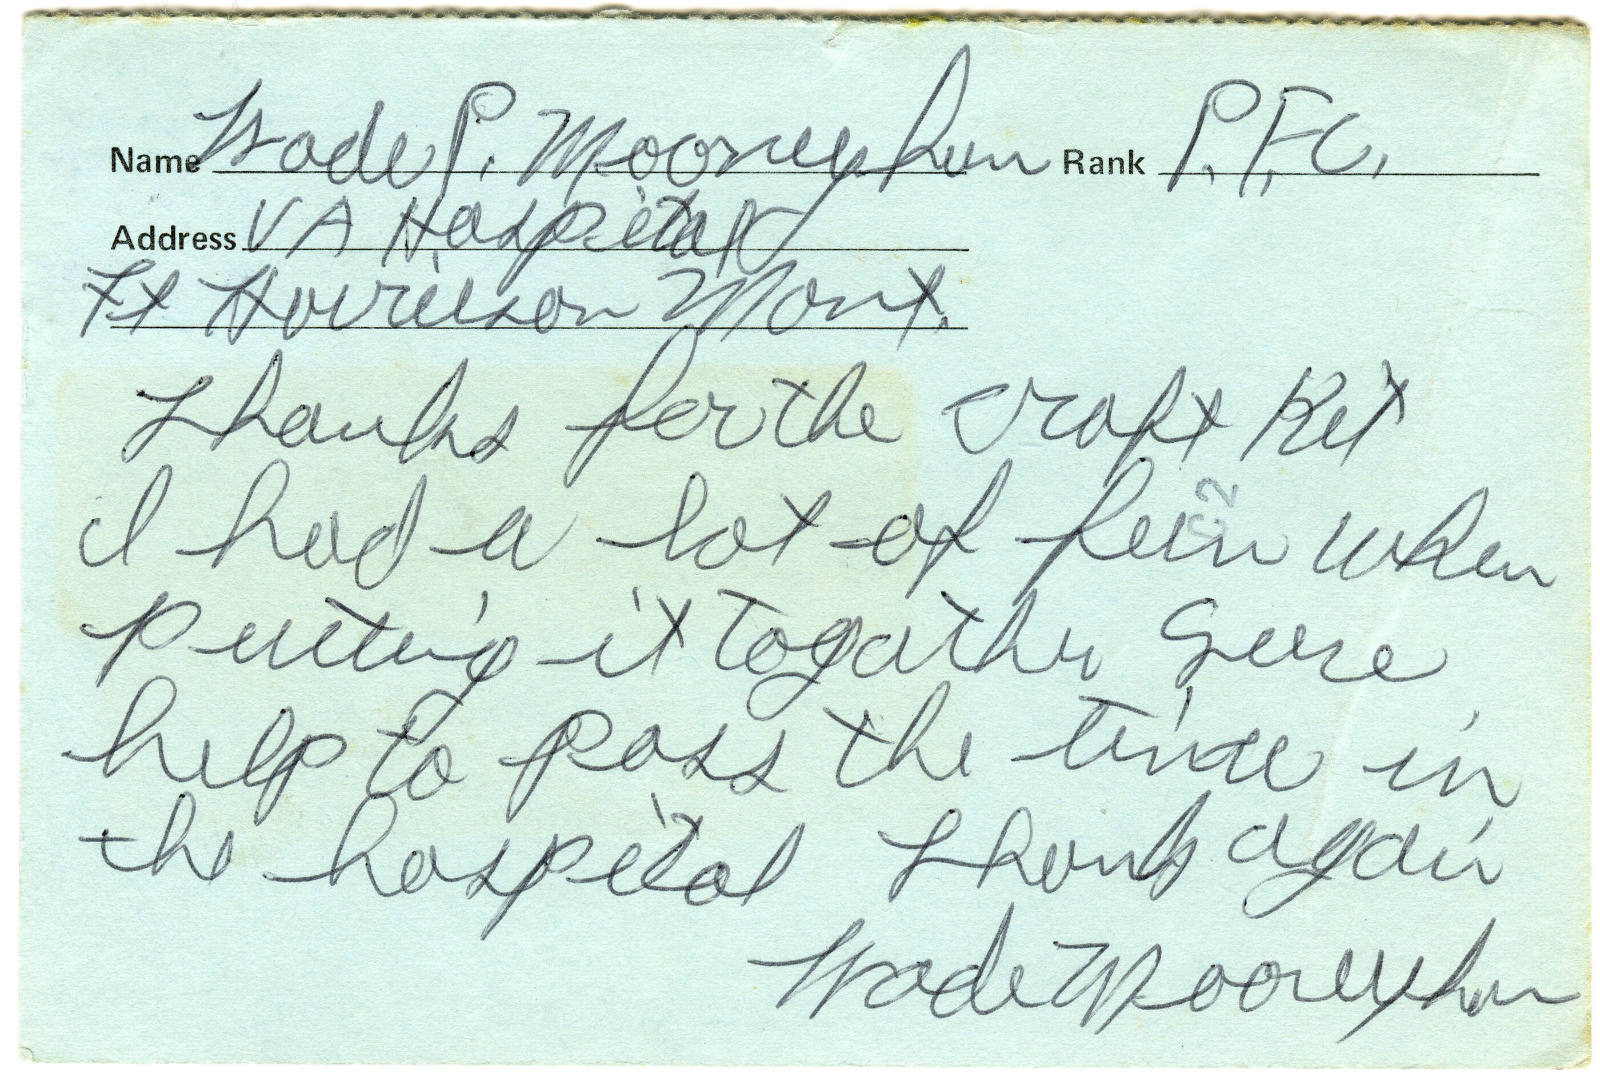 Name Wade P. Mooneyhun Rank P.F.C.
Address VA Hospital
Ft Harrison Mont.
Thanks for the craft Kit
I had a lot of fun when
putting it togather Sure
help to pass the time in
the hospital Thanks again
Wade Mooneyhun